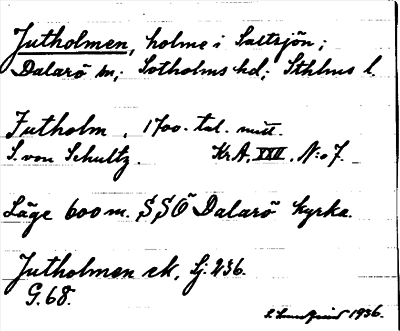 Jutholmen, holme i Saltsjön;
Dalarö sn; Sotholms hd; Sthlms l.
Jutholm. 1700-tal. mitt.
S. von Schultz. Kr.A. XXII. N:o 7.
Läge 600 m. SSÖ Dalarö kyrka.
Jutholmen ek, Lj. 236.
G. 68.
1936.